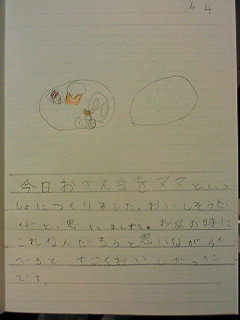 44
今日おべん当をママといっ
しょにつくりました。おいしそうだ
なと、思いました。の時に
これなんだろうと思いながら
べると、すごくおいしかった
です。